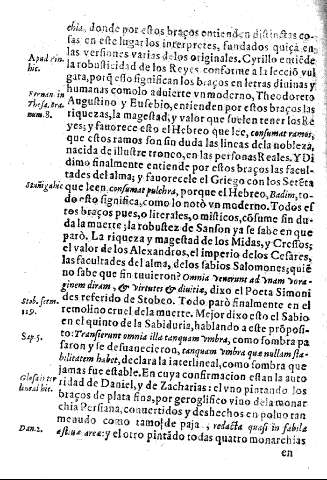 chia, donde por estos braços entienden distinctas co-
sas en este lugar los interpretes, fundados quiçà en
las versiones varias de los originales. Cyrillo entiẽde
Apud Pin-
hic.
la robusticidad de los Reyes conforme a la lecciõ vul
gata, porq̃ esso significan los braços en letras diuinas y
humanas como lo aduierte vn moderno, Theodoreto
Augustino y Eusebio, entienden por estos braços las
Fernan. in
Thesa. bra.
num. 8.
riquezas, la magestad, y valor que suelen tener los Re
yes; y fauorece esto el Hebreo que lee, consumat ramos,
que estos ramos son sin duda las lineas de la nobleza,
nacida de illustre tronco, en las personas Reales. Y Di
dimo finalmente entiende por estos braços las facul-
tades del alma; y fauorecele el Griego con los Setẽta
que leen consumat pulchra, porque el Hebreo, Badim, to-
do esto significa, como lo notò vn moderno. Todos es
tos braços pues, o literales, o misticos, cõsume sin du-
da la muerte; la robustez de Sanson ya se sabe en que
parò. La riqueza y magestad de los Midas, y Cressos;
el valor de los Alexandros, el imperio de los Cesares,
las facultades del alma, de los sabios Salomones; quiẽ
no sabe que fin tuuieron? Omnia venerunt ad vnam vora-
ginem diram, & virtutes & diuitiæ, dixo el Poeta Simoni
des referido de Stobeo. Todo parò finalmente en el
Stob. serm.
119.
remolino cruel de la muerte. Mejor dixo esto el Sabio
en el quinto de la Sabiduria, hablando a este proposi-
to: Transierunt omnia illa tanquam vmbra, como sombra pa
Sap. 5.
saron y se desuanecieron, tanquam vmbra quæ nullam sta-
bilitatem habet, declara la interlineal, como sombra que
jamas fue estable. En cuya confirmacion estan la auto
ridad de Daniel, y de Zacharias: el vno pintando los
braços de plata fina, por geroglifico viuo de la monar
chia Persiana, conuertidos y deshechos en poluo tan
meaudo como tamo de paja, redacta quasi in fabilã
Dan. 2.
æstiuæ areæ: y el otro pintãdo todas quatro monarchias
en